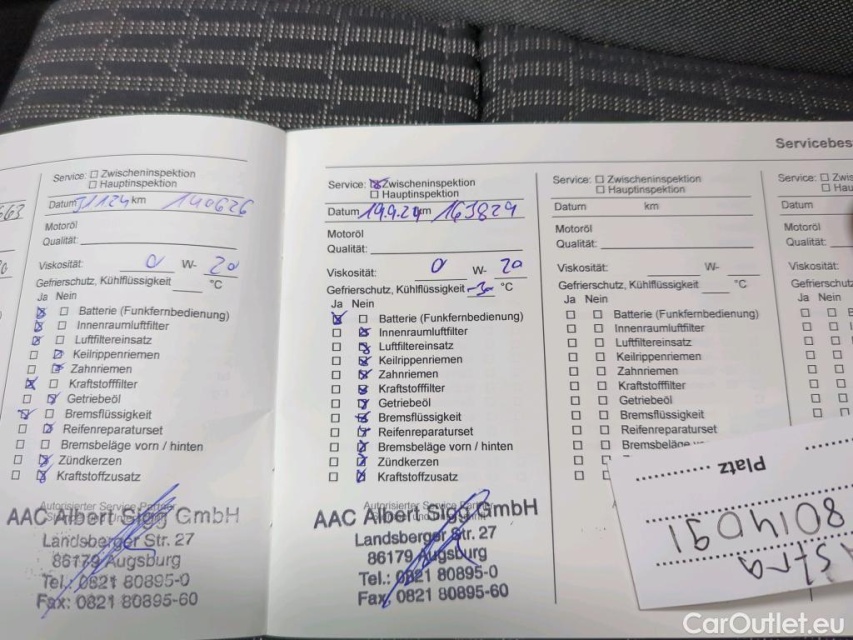 Servicebes
Service: Zwischeninspektion
Hauptinspektion
Datum km 140626
Motoröl
Qualität:
Viskosität: 0 W- 20
Gefrierschutz, Kühlflüssigkeit °C
Ja Nein
Batterie (Funkfernbedienung)
Innenraumluftfilter
Luftfiltereinsatz
Keilrippenriemen
Zahnriemen
Kraftstofffilter
Getriebeöl
Bremsflüssigkeit
Reifenreparaturset
Bremsbeläge vorn / hinten
Zündkerzen
Kraftstoffzusatz
Autorisierter Service Partner
AAC Albert Sigg GmbH
Landsberger Str. 27
86179 Augsburg
Tel.: 0821 80895-0
Fax: 0821 80895-60
Service: Zwischeninspektion
Hauptinspektion
Datum 19.9.24 km 163829
Motoröl
Qualität:
Viskosität: 0 W- 20
Gefrierschutz, Kühlflüssigkeit °C
Ja Nein
Batterie (Funkfernbedienung)
Innenraumluftfilter
Luftfiltereinsatz
Keilrippenriemen
Zahnriemen
Kraftstofffilter
Getriebeöl
Bremsflüssigkeit
Reifenreparaturset
Bremsbeläge vorn / hinten
Zündkerzen
Kraftstoffzusatz
Autorisierter Service Partner
AAC Albert Sigg GmbH
Landsberger Str. 27
86179 Augsburg
Tel.: 0821 80895-0
Fax: 0821 80895-60
Service: Zwischeninspektion
Hauptinspektion
Datum km
Motoröl
Qualität:
Viskosität: W-
Gefrierschutz, Kühlflüssigkeit °C
Ja Nein
Batterie (Funkfernbedienung)
Innenraumluftfilter
Luftfiltereinsatz
Keilrippenriemen
Zahnriemen
Kraftstofffilter
Getriebeöl
Bremsflüssigkeit
Reifenreparaturset
Bremsbeläge
Service: Zw
Hau
Datum
Motoröl
Qualität:
Viskosität:
Gefrierschutz
Ja Nein
Platz
8014091
Astra
CarOutlet.eu